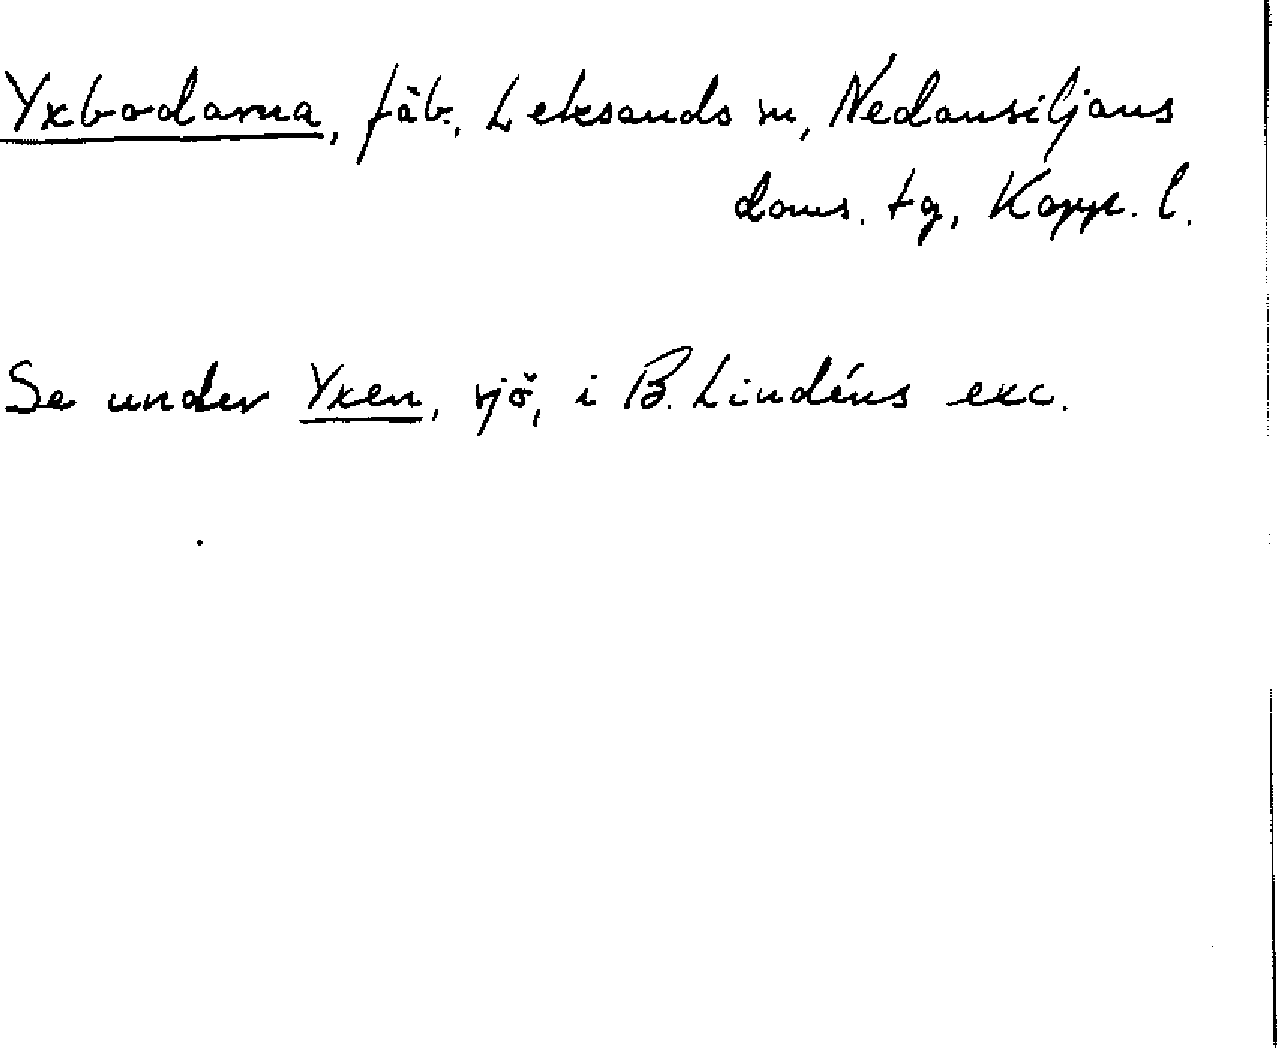 Yxbodarna, fäb., Leksands sn, Nedansiljans
doms. tg, Kopp. l.
Se under Yxen, sjö, i B. Lindéns exc.